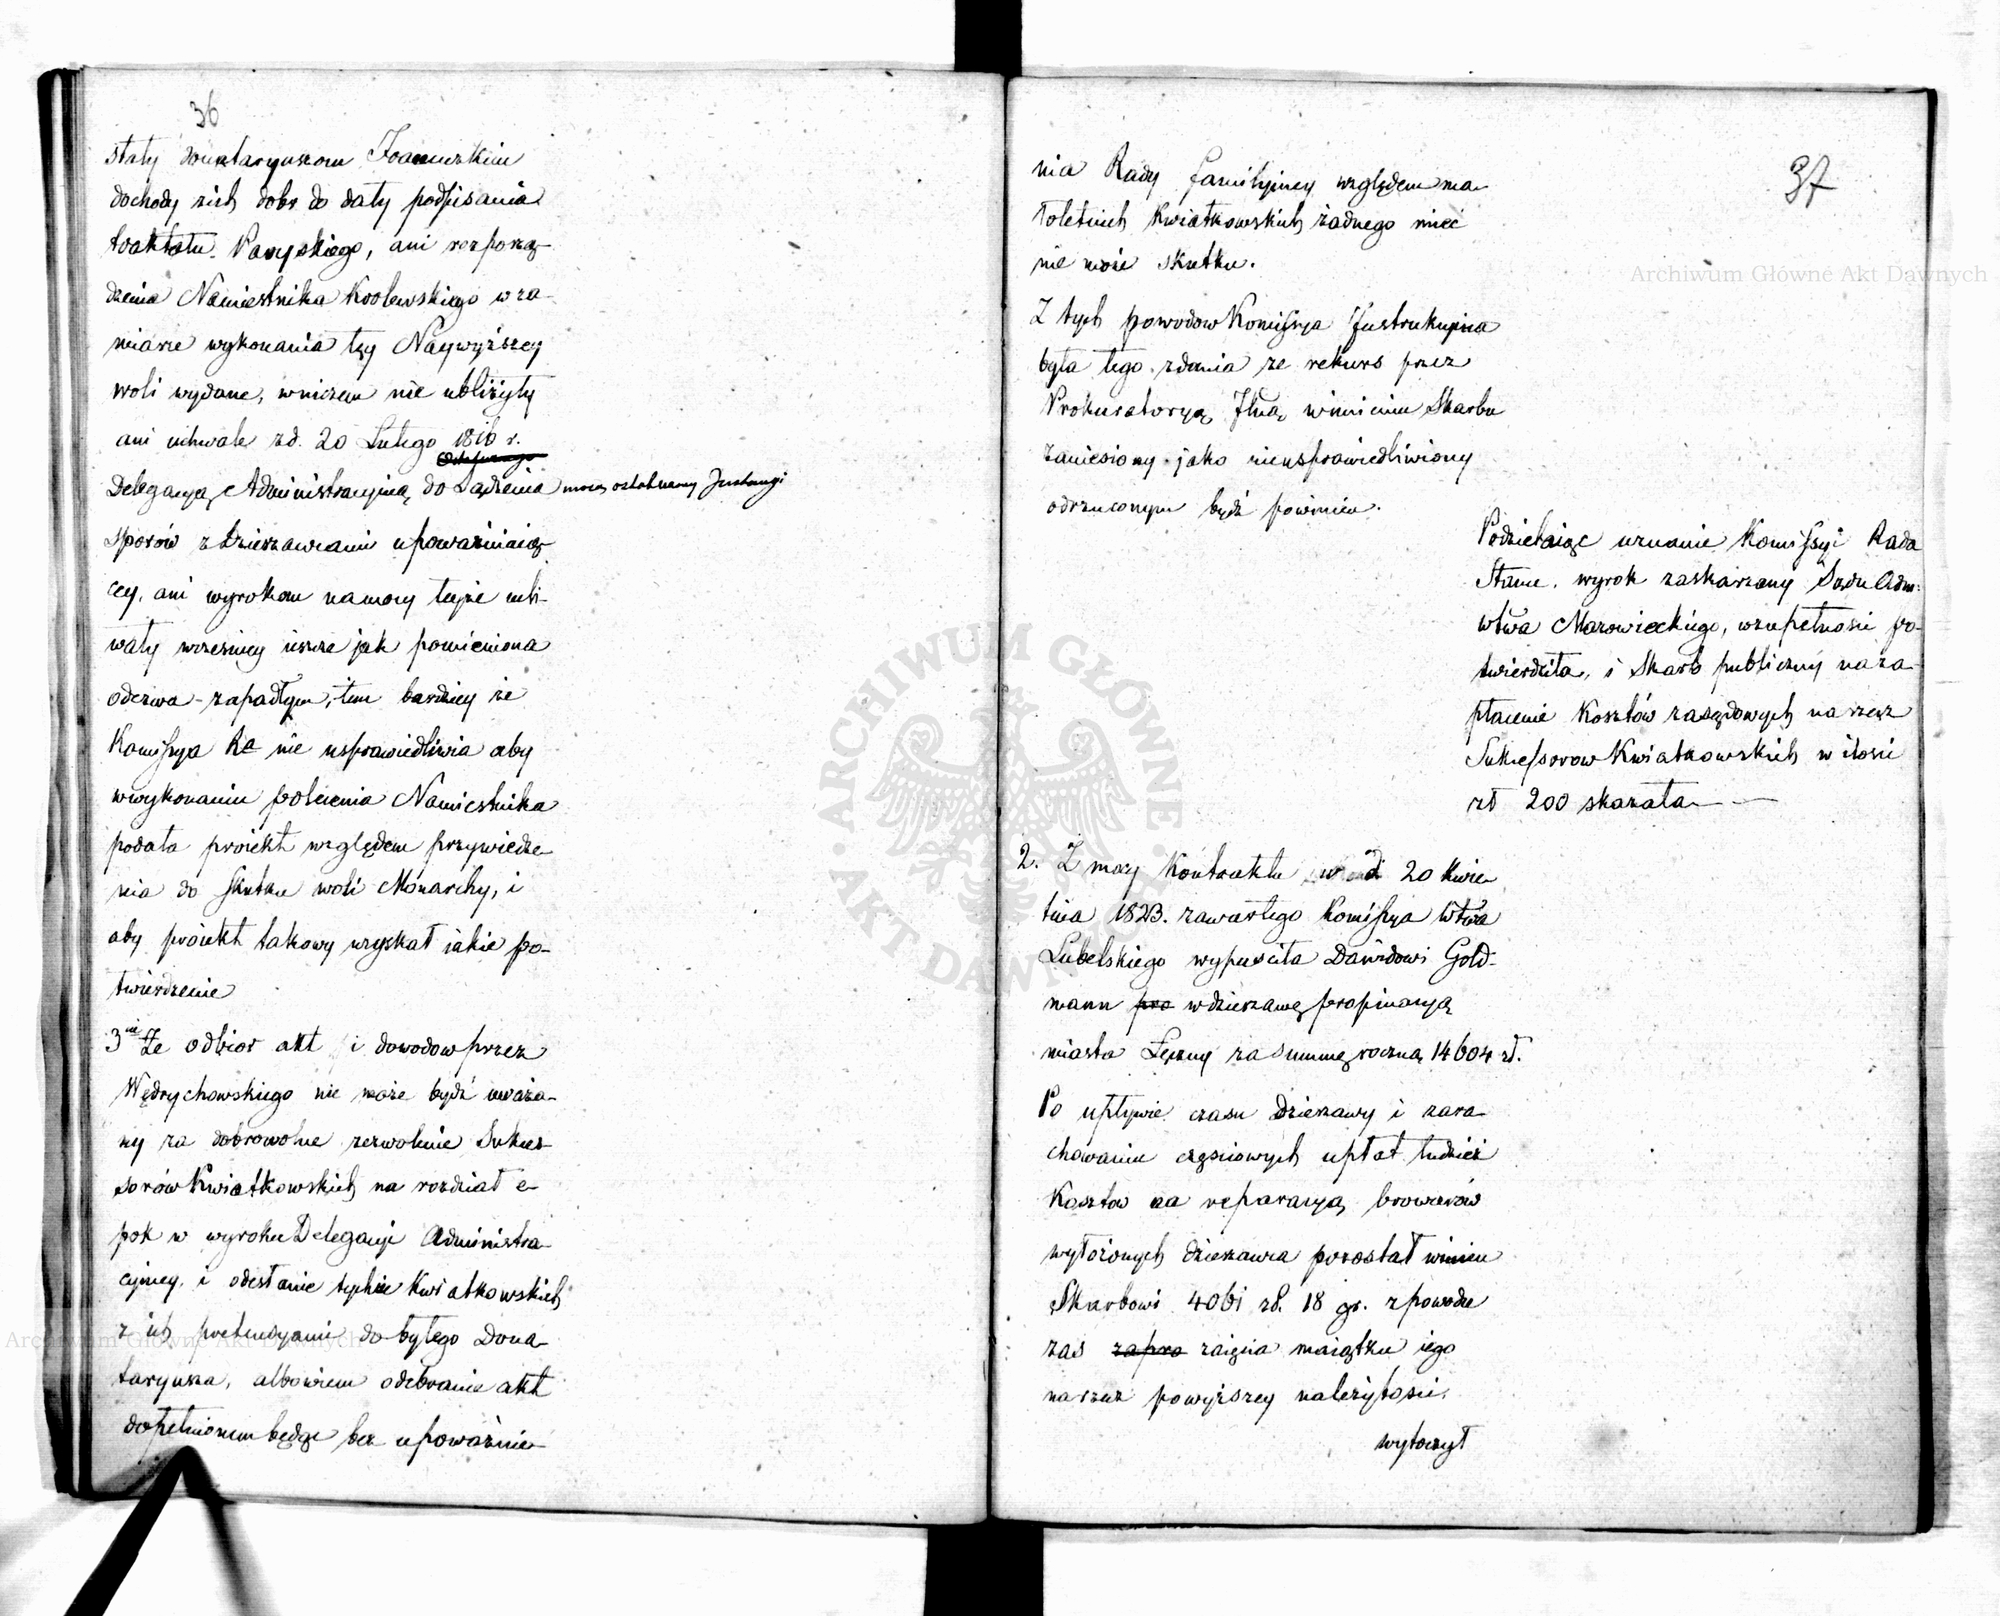 36
stały donataryuszom Francuzkim
dochody zich dobr do daty podpisania
traktatu Paryskiego, ani rozporzą-
dzenia Namiestnika Krolewskiego wza-
miarze wykonania tey Naywyższey
woli wydane, wniczem nie ubliżyły
ani uchwale zd. 20 Lutego 1816 r.
Delegacyą Administracyiną do Sądzenia mocą ostateczney Instancyi
sporów z dzierżawcami upoważniaią-
cey, ani wyrokom namocy teyże uch-
wały wcześniey ieszcze jak pomieniona
odezwa - zapadłym, tem bardziey że
Komissya Rz nie usprawiedliwia aby
wwykonaniu polecenia Namiestnika
podała proiekt względem przywiedze-
nia do skutku woli Monarchy, i
aby proiekt takowy uzyskał iakie po-
twierdzenie
3cie Że odbior akt i dowodow przez
Wędrychowskiego nie może bydź uważa-
ny za dobrowolne zezwolenie Sukces-
sorów Kwiatkowskich na rozdział e-
pok w wyroku Delegacyi Administra-
cyiney i odesłanie tychże Kwiatkowskich
z ich pretensyami do byłego Dona-
taryusza, albowiem odebranie akt
dopełnionem będąc bez upoważnie-
37
nia Rady familyiney względem ma-
łoletnich Kwiatkowskich żadnego mieć
nie może skutku.
Z tych powodow Komissya Instrukcyina
była tego zdania że rekurs przez
Prokuratoryą Jlną wimieniu Skarbu
zaniesiony jako nieusprawiedliwiony
odrzuconym bydź powinien.
Podzielaiąc uznanie Komissyi Rada
Stanu wyrok zaskarżony Sądu Adm:
wtwa Mazowieckiego, wzupełności po-
twierdziła, i Skarb publiczny na za-
płacenie Kosztów zasądowych na rzecz
Sukcessorow Kwiatkowskich w ilości
zł 200 skazała
2. Z mocy Kontraktu w d 20 Kwie-
tnia 1823. zawartego Komissya Wtwa
Lubelskiego wypuściła Dawidowi Gold-
mann pro wdzierżawę propinacyą
miasta Łęczny za summę roczną 14604 zł.
Po upływie czasu dzierżawy i zara-
chowaniu częściowych upłat tudzież
Kosztow na reparacyą browarów
wyłożonych dzierżawca pozostał winien
Skarbowi 4061 zł. 18 gr. z powodu
zas zapro zaięcia maiątku iego
na rzecz powyższey należytości.
wytoczył
Archiwum Główne Akt Dawnych
Archiwum Główne Akt Dawnych
ARCHIWUM GŁÓWNE · AKT DAWNYCH ·